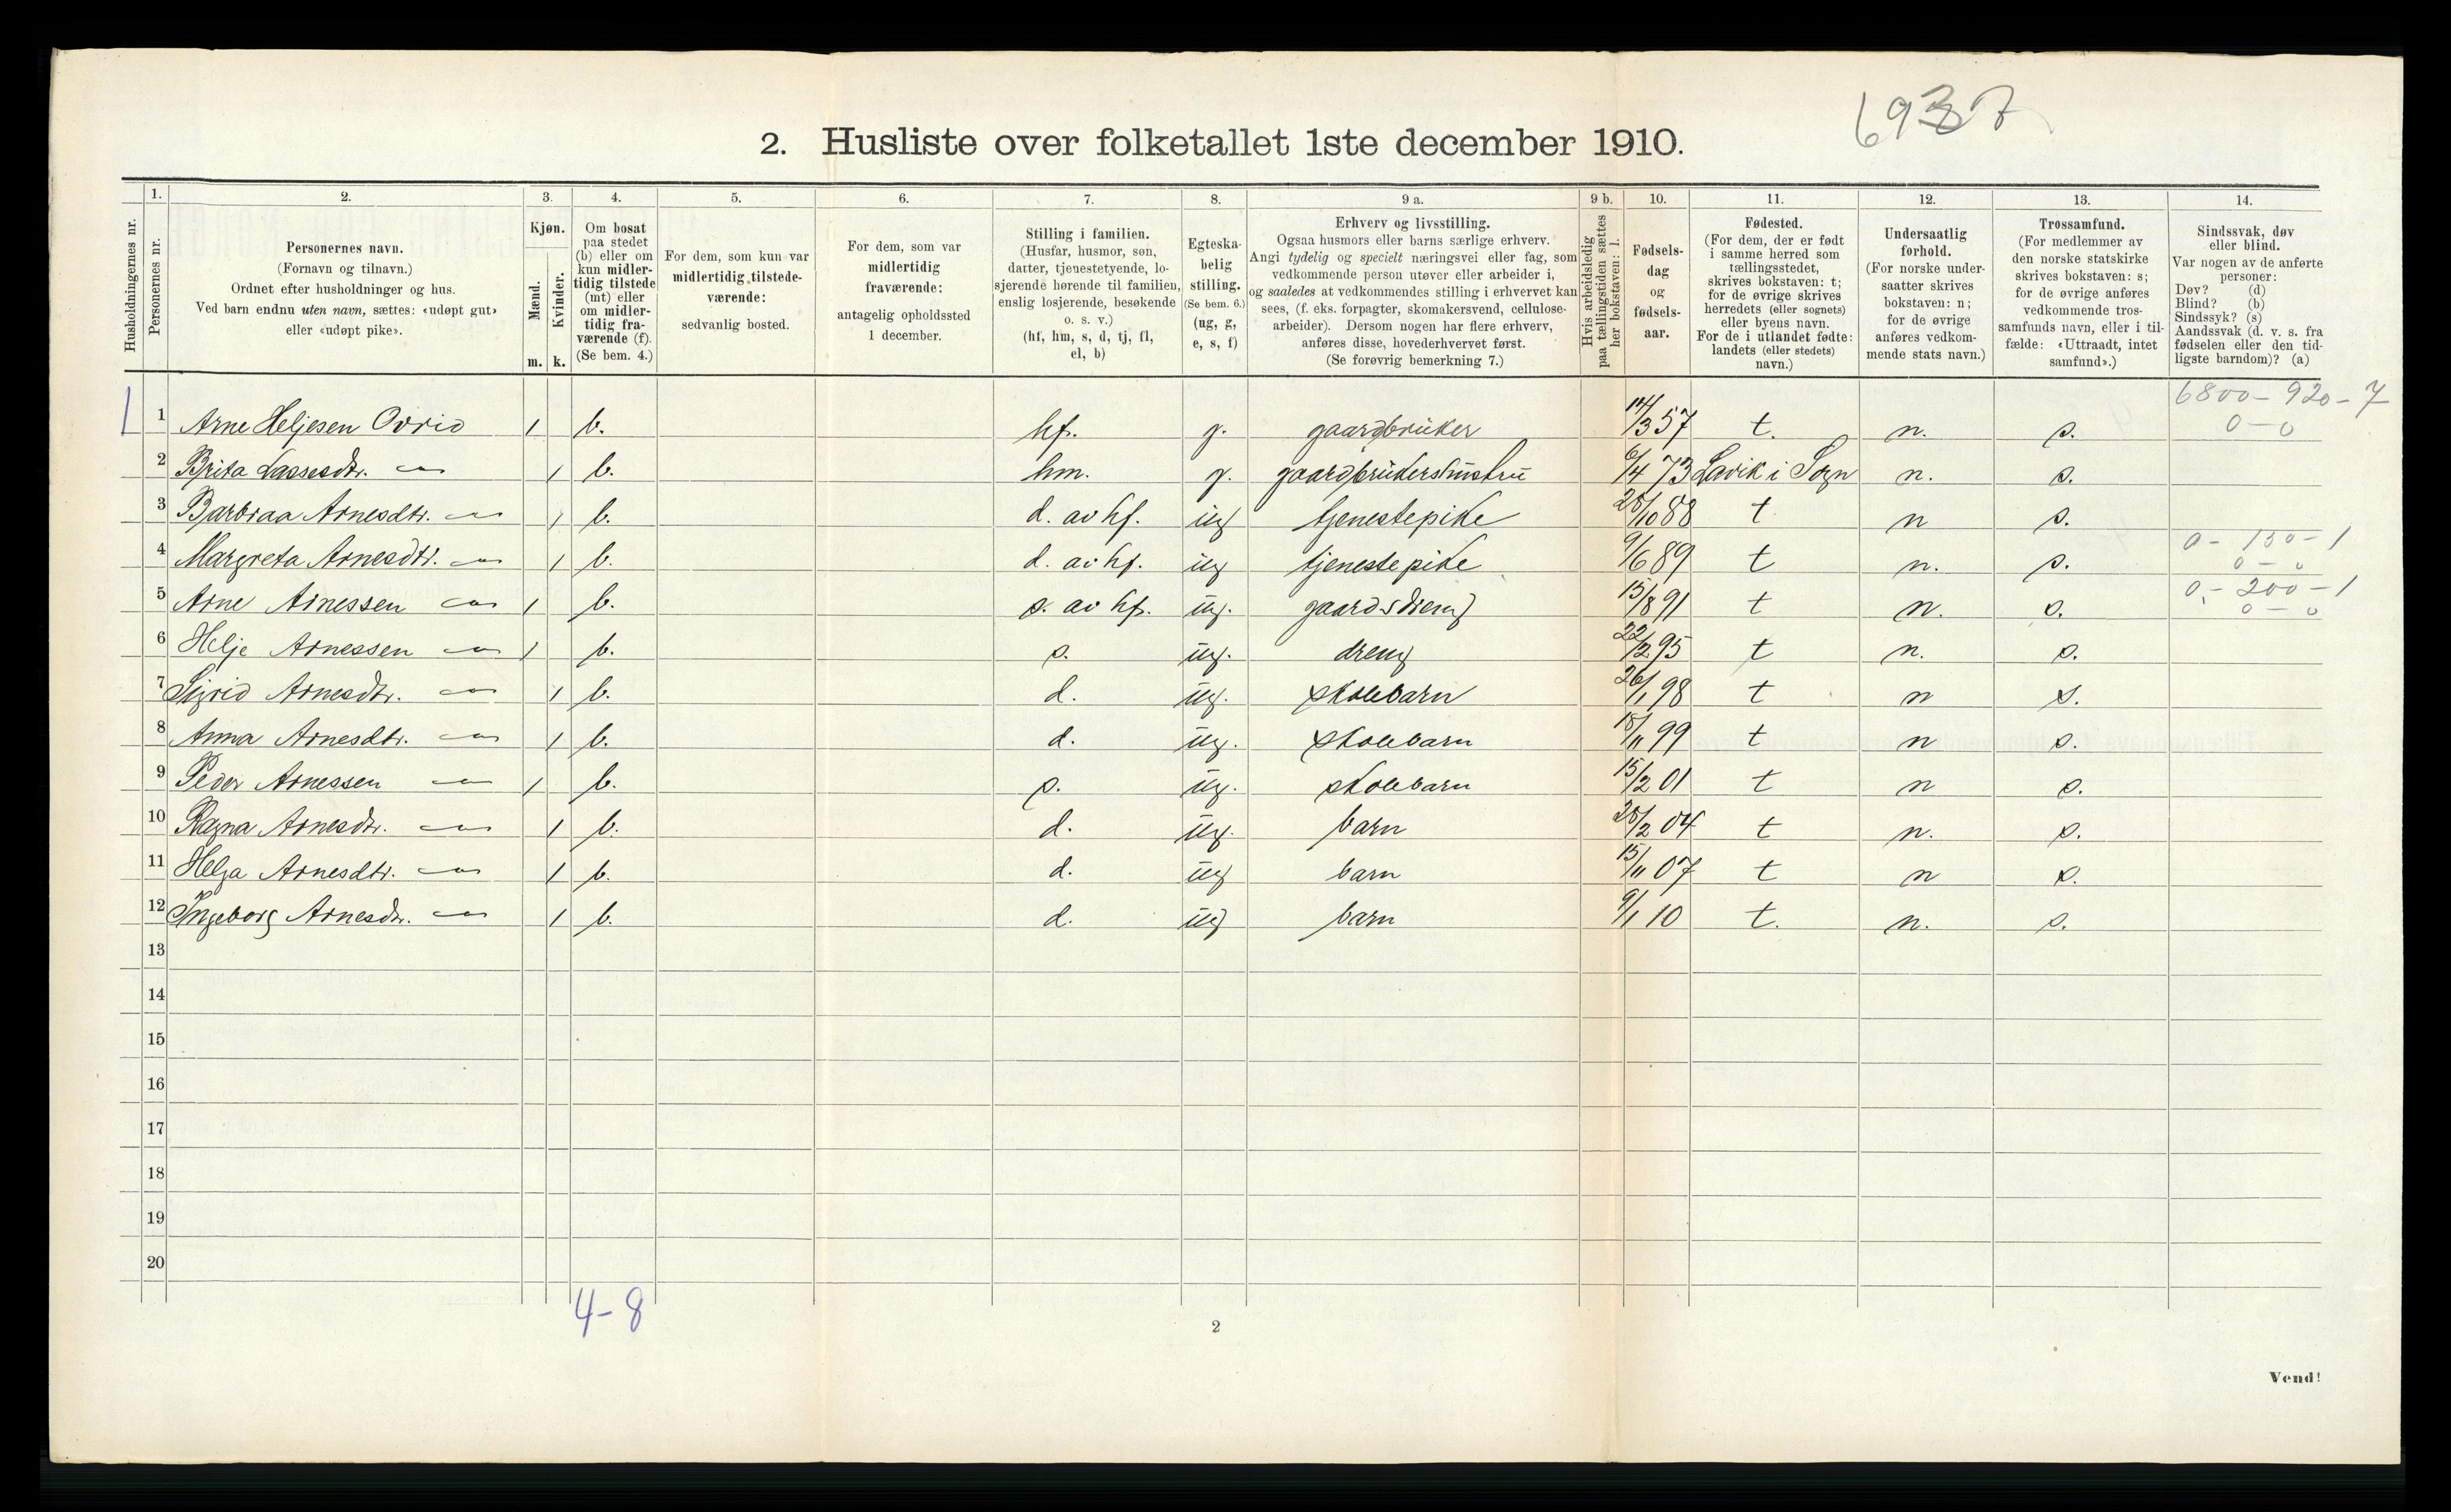 6937
2. Husliste over folketallet 1ste december 1910.
Husholdningernes nr.
1.
Personernes nr.
2.
Personernes navn.
(Fornavn og tilnavn.)
Ordnet efter husholdninger og hus.
Ved barn endnu uten navn, sættes: «udøpt gut»
eller «udøpt pike».
3.
Kjøn.
Mænd.
Kvinder.
m. k.
4.
Om bosat
paa stedet
(b) eller om
kun midler-
tidig tilstede
(mt) eller
om midler-
tidig fra-
værende (f).
(Se bem. 4.)
5.
For dem, som kun var
midlertidig tilstede-
værende:
sedvanlig bosted.
6.
For dem, som var
midlertidig
fraværende:
antagelig opholdssted
1 december.
7.
Stilling i familien.
(Husfar, husmor, søn,
datter, tjenestetyende, lo-
sjerende hørende til familien,
enslig losjerende, besøkende
o. s. v.)
(hf, hm, s, d, tj, fl,
el, b)
8.
Egteska-
belig
stilling.
(Se bem. 6.)
(ug, g,
e, s, f)
9 a.
Erhverv og livsstilling.
Ogsaa husmors eller barns særlige erhverv.
Angi tydelig og specielt næringsvei eller fag, som
vedkommende person utøver eller arbeider i,
og saaledes at vedkommendes stilling i erhvervet kan
sees, (f. eks. forpagter, skomakersvend, cellulose-
arbeider). Dersom nogen har flere erhverv,
anføres disse, hovederhvervet først.
(Se forøvrig bemerkning 7.)
9 b.
Hvis arbeidsledig
paa tællingstiden sættes
her bokstaven: l.
10.
Fødsels-
dag
og
fødsels-
aar.
11.
Fødested.
(For dem, der er født
i samme herred som
tællingsstedet,
skrives bokstaven: t;
for de øvrige skrives
herredets (eller sognets)
eller byens navn.
For de i utlandet fødte:
landets (eller stedets)
navn.)
12.
Undersaatlig
forhold.
(For norske under-
saatter skrives
bokstaven: n;
for de øvrige
anføres vedkom-
mende stats navn.)
13.
Trossamfund.
(For medlemmer av
den norske statskirke
skrives bokstaven: s;
for de øvrige anføres
vedkommende tros-
samfunds navn, eller i til-
fælde: «Uttraadt, intet
samfund».)
14.
Sindssvak, døv
eller blind.
Var nogen av de anførte
personer:
Døv? (d)
Blind? (b)
Sindssyk? (s)
Aandssvak (d. v. s. fra
fødselen eller den tid-
ligste barndom)? (a)
6800 - 920 - 7
1 1 Arne Heljesen Ovrid 1 b. hf. g. gaardbruker 14/3 57 t. n. s. 0 - 0
2 Brita Lassesdtr. — 1 b. hm. g. gaardbrukershustru 6/4 73 Lavik i Sogn n. s.
3 Barbraa Arnesdtr. — 1 b. d. av hf. ug tjenestepike 28/10 88 t n s.
0 - 130 - 1
4 Margreta Arnesdtr. — 1 b. d. av hf. ug tjenestepike 9/6 89 t n. s. 0 - 0
0 - 200 - 1
5 Arne Arnessen — 1 b. s. av hf. ug. gaardsdreng 15/8 91 t n. s. 0 - 0
6 Helje Arnessen — 1 b. s. ug. dreng 22/2 95 t n. s.
7 Sigrid Arnesdtr. — 1 b. d. ug. skolebarn 26/1 98 t n s.
8 Anna Arnesdtr. — 1 b. d. ug. skolebarn 18/11 99 t n s.
9 Peder Arnessen — 1 b. s. ug. skolebarn 15/2 01 t n s.
10 Ragna Arnesdtr. — 1 b. d. ug. barn 28/2 04 t n. s.
11 Helga Arnesdtr. — 1 b. d. ug barn 15/11 07 t n s.
12 Ingeborg Arnesdtr. — 1 b. d. ug barn 9/1 10 t. n. s.
13
14
15
16
17
18
19
20
4-8
2
Vend!